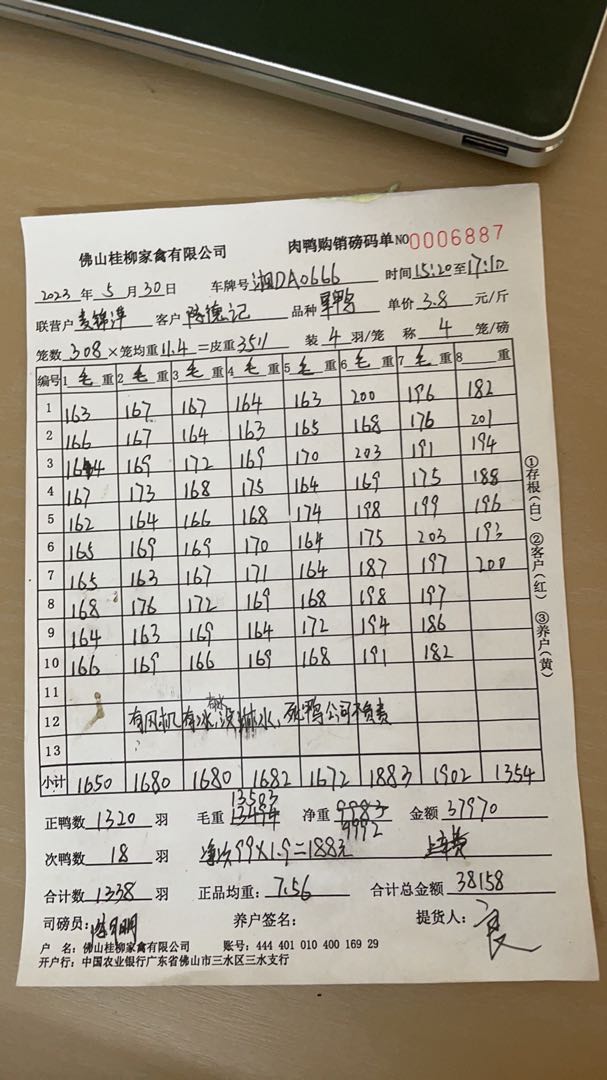 佛山桂柳家禽有限公司 肉鸭购销磅码单 NO 0006887
2023 年 5 月 30 日 车牌号 湘DA0666 时间 15:20 至 17:10
联营户 麦锦洋 客户 陈德记 品种 单价 3.8 元/斤
笼数 308 ×笼均重 11.4 =皮重 3511 装 4 羽/笼 称 4 笼/磅
编号 1 毛 重 2 毛 重 3 毛 重 4 毛 重 5 毛 重 6 毛 重 7 毛 重 8 重
1 163 167 167 164 163 200 196 182
2 166 167 164 163 165 168 176 201
3 164 169 172 169 170 203 191 194
4 167 173 168 175 164 169 175 188
5 162 164 166 168 174 198 199 196
6 165 169 169 170 164 175 203 193
7 165 163 167 171 164 187 197 200
8 168 176 172 169 168 198 197
9 164 163 169 164 172 194 186
10 166 169 166 169 168 191 182
11
12 有风机有冰,没淋水,死鸭公司不负责
13
小计 1650 1680 1680 1682 1672 1883 1902 1354
13583
正鸭数 1320 羽 毛重 13494 净重 9983 金额 37970
9992
次鸭数 18 羽 99×1.9=188元
合计数 1338 羽 正品均重: 7.56 合计总金额 38158
司磅员: 养户签名: 提货人:
户 名: 佛山桂柳家禽有限公司 账号: 444 401 010 400 169 29
开户行: 中国农业银行广东省佛山市三水区三水支行
①存根(白) ②客户(红) ③养户(黄)